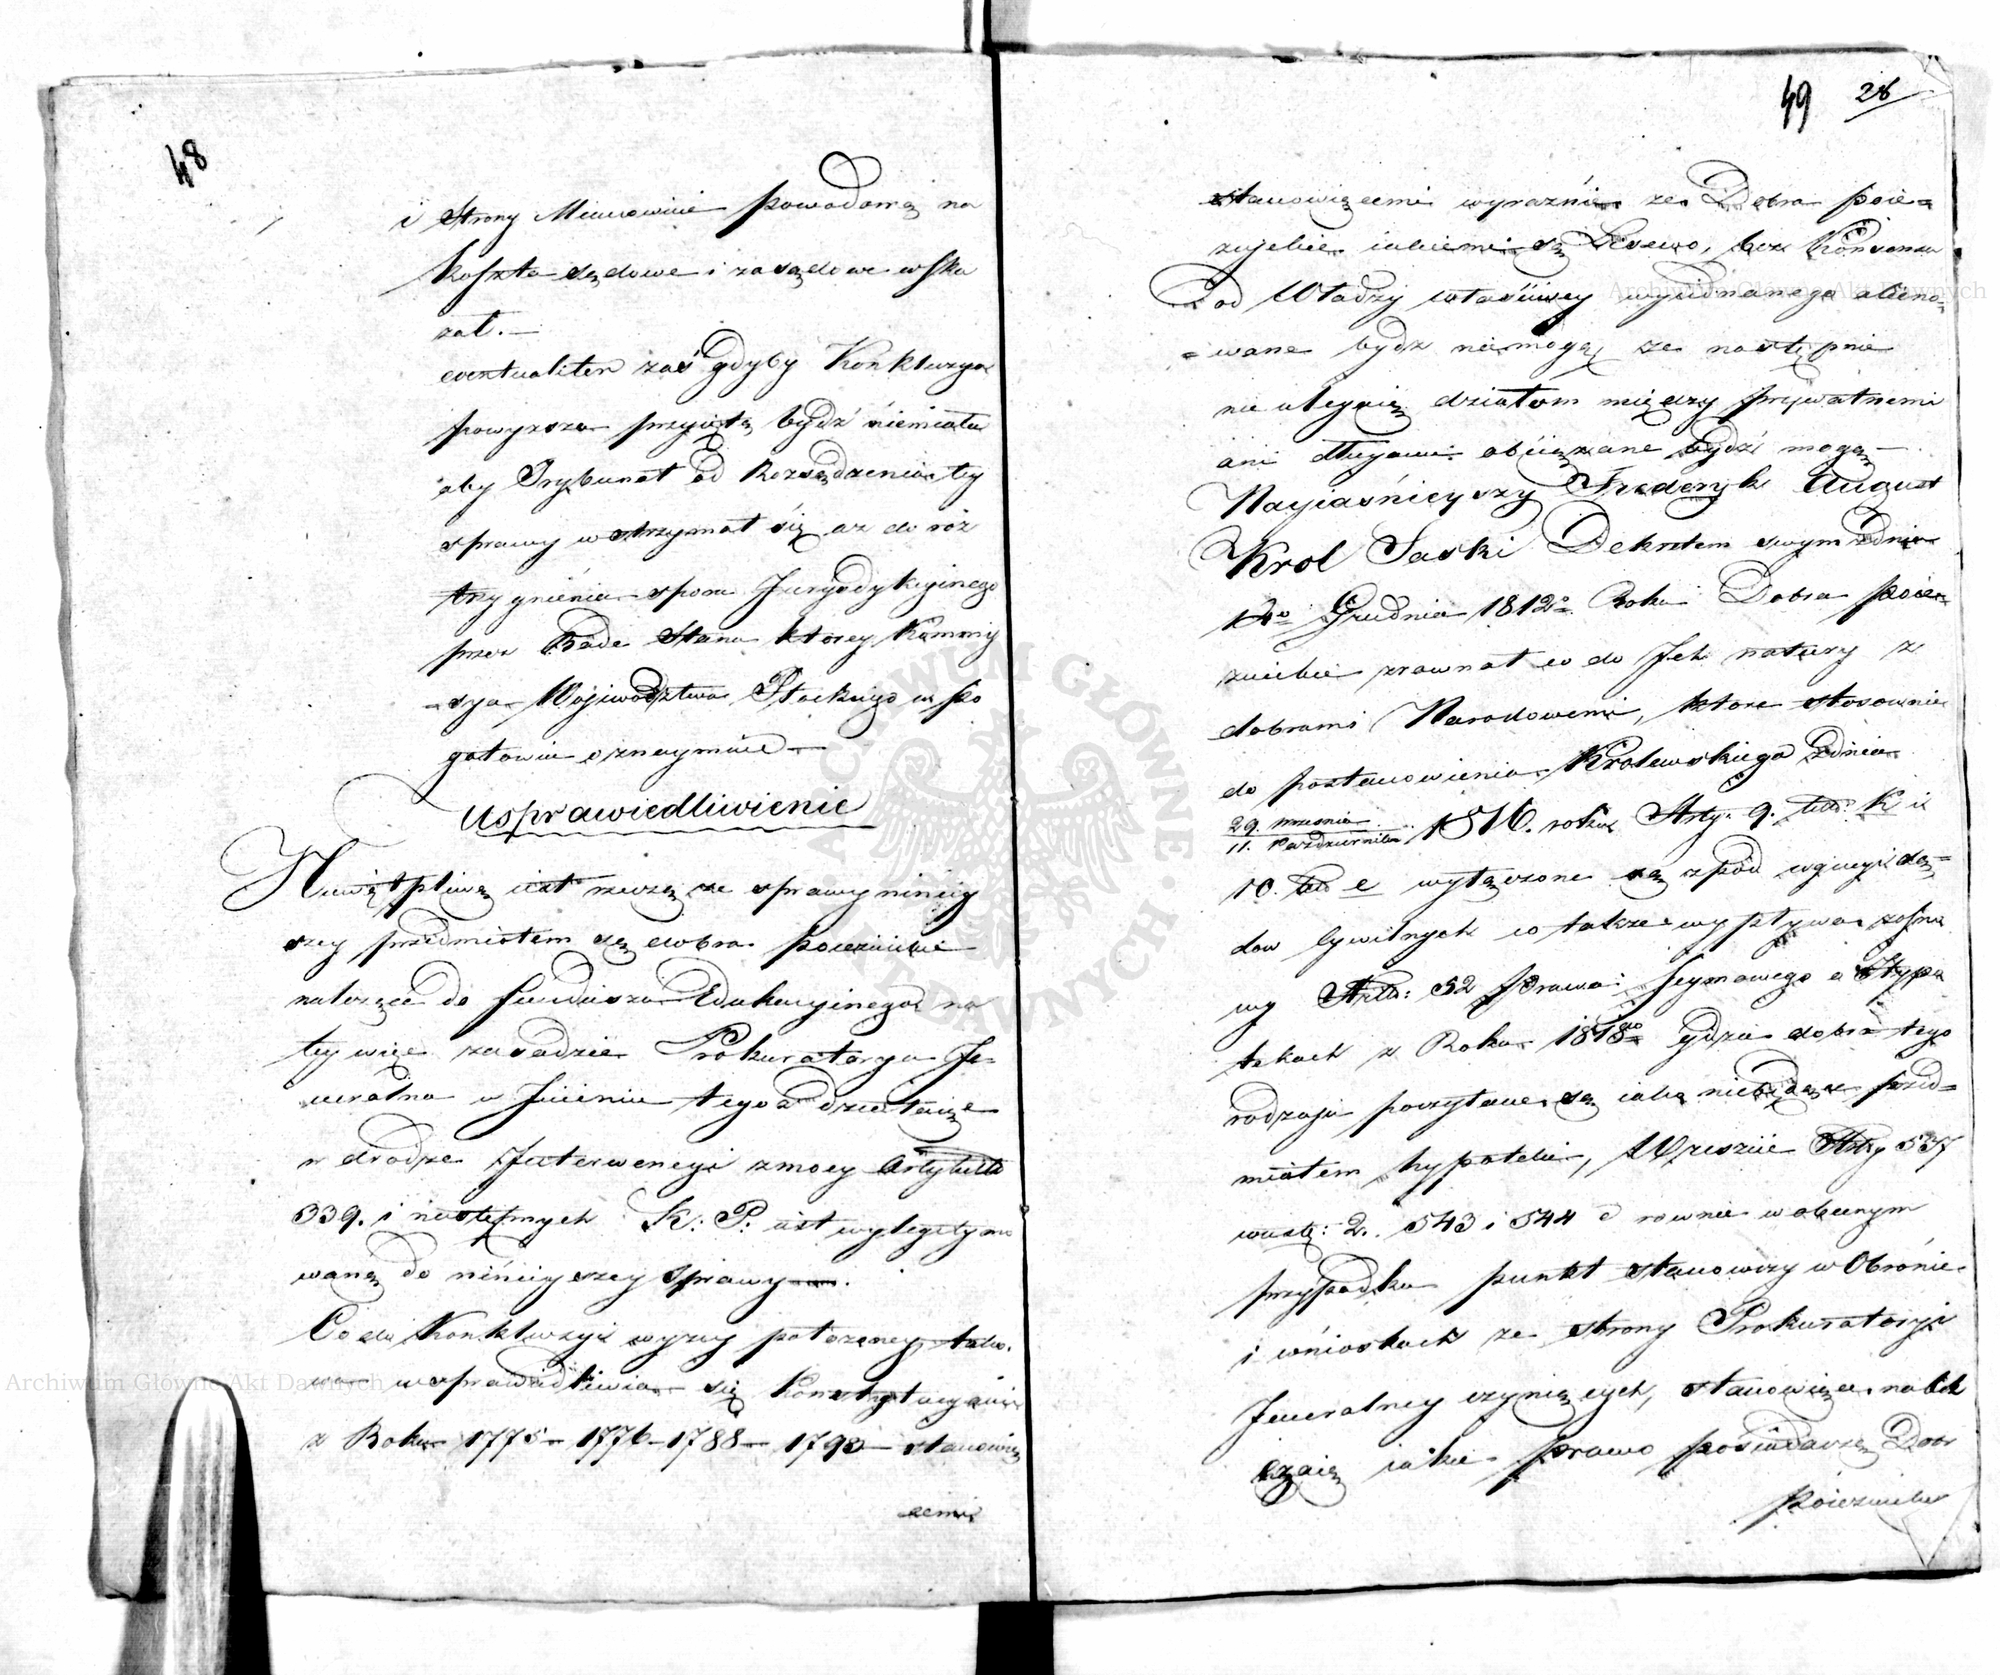 48
i Strony Mianowicie powodową na
koszta sądowe i zasądowe wska
zał. —
eventualiter zaś gdyby Konkluzya
powyższa przyiętą bydź niemiała
aby Trybunał od Rozsądzenia tey
sprawy wstrzymał się aż do roz
trzygnienia sporu Juryzdykcyinego
przez Radę Stanu ktorey Kommis
sya Woiewodztwa Płockiego w po
gotowiu oznaymiła —
Usprawiedliwienie
Niewątpliwą iest rzeczą że sprawy niniey
szey przedmiotem są dobra poiezuickie
należące do funduszu Edukacyinego na
tey więc zasadzie Prokuratorya Je
neralna w Jmieniu tegoż działaiąc
w drodze Jnterwencyi z mocy Artykułu
339. i następnych K: P: iest wylegitymo
waną do ninieyszey sprawy —.
Co do Konkluzyi wyzey położoney, tako
wa usprawiedliwia się Konstytucyami
z Roku 1775 – 1776 – 1788 – 1793 – stanowią
cemi
49 28
stanowiącemi wyraźnie że Dobra poie=
zuickie iakiemi są bez Konsensu
od Władzy właściwey wyiednanego alieno=
=wane bydź niemogą że następnie
nie ulegaią działom między prywatnemi
ani długami obciążane bydź mogą —
Nayiaśnieyszy Frederyk August
Krol Saski Dekretem swym z dnia
Grudnia 1812º Roku Dobra poie=
zuickie zrownał co do Jch natury z
dobrami Narodowemi, ktore stosownie
do postanowienia Krolewskiego z dnia
29. Września
11. Października 1816. roku Arty: 9. litt: K i
10. litt e wyłączone są z pod
dow Cywilnych co także wypływa z osno
wy Artu: 52 Prawa Seymowego o Hypo
tekach z Roku 1818go gdzie dobra tego
rodzaju poczytane są iako niebędące przed=
miotem hypoteki, Wreszcie Arty 537
ustę: 2. 543 i 544 rownie w obecnym
przypadku punkt stanowczy w Obronie
i wnioskach ze strony Prokuratoryi
Jeneralney czyniących, stanowiąc
iakie prawo posiadacze Dobr
poiezuickie
Archiwum Główne Akt Dawnych
Archiwum Główne Akt Dawnych
ARCHIWUM GŁÓWNE · AKT DAWNYCH ·